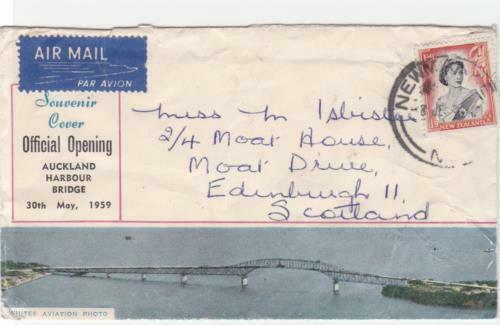 AIR MAIL
PAR AVION
Souvenir
Cover
Official Opening
AUCKLAND
HARBOUR
BRIDGE
30th May, 1959
Miss M Isbister
2/4 Moat House,
Moat Drive,
Edinburgh 11,
Scotland
NEW ZEALAND
WHITES AVIATION PHOTO